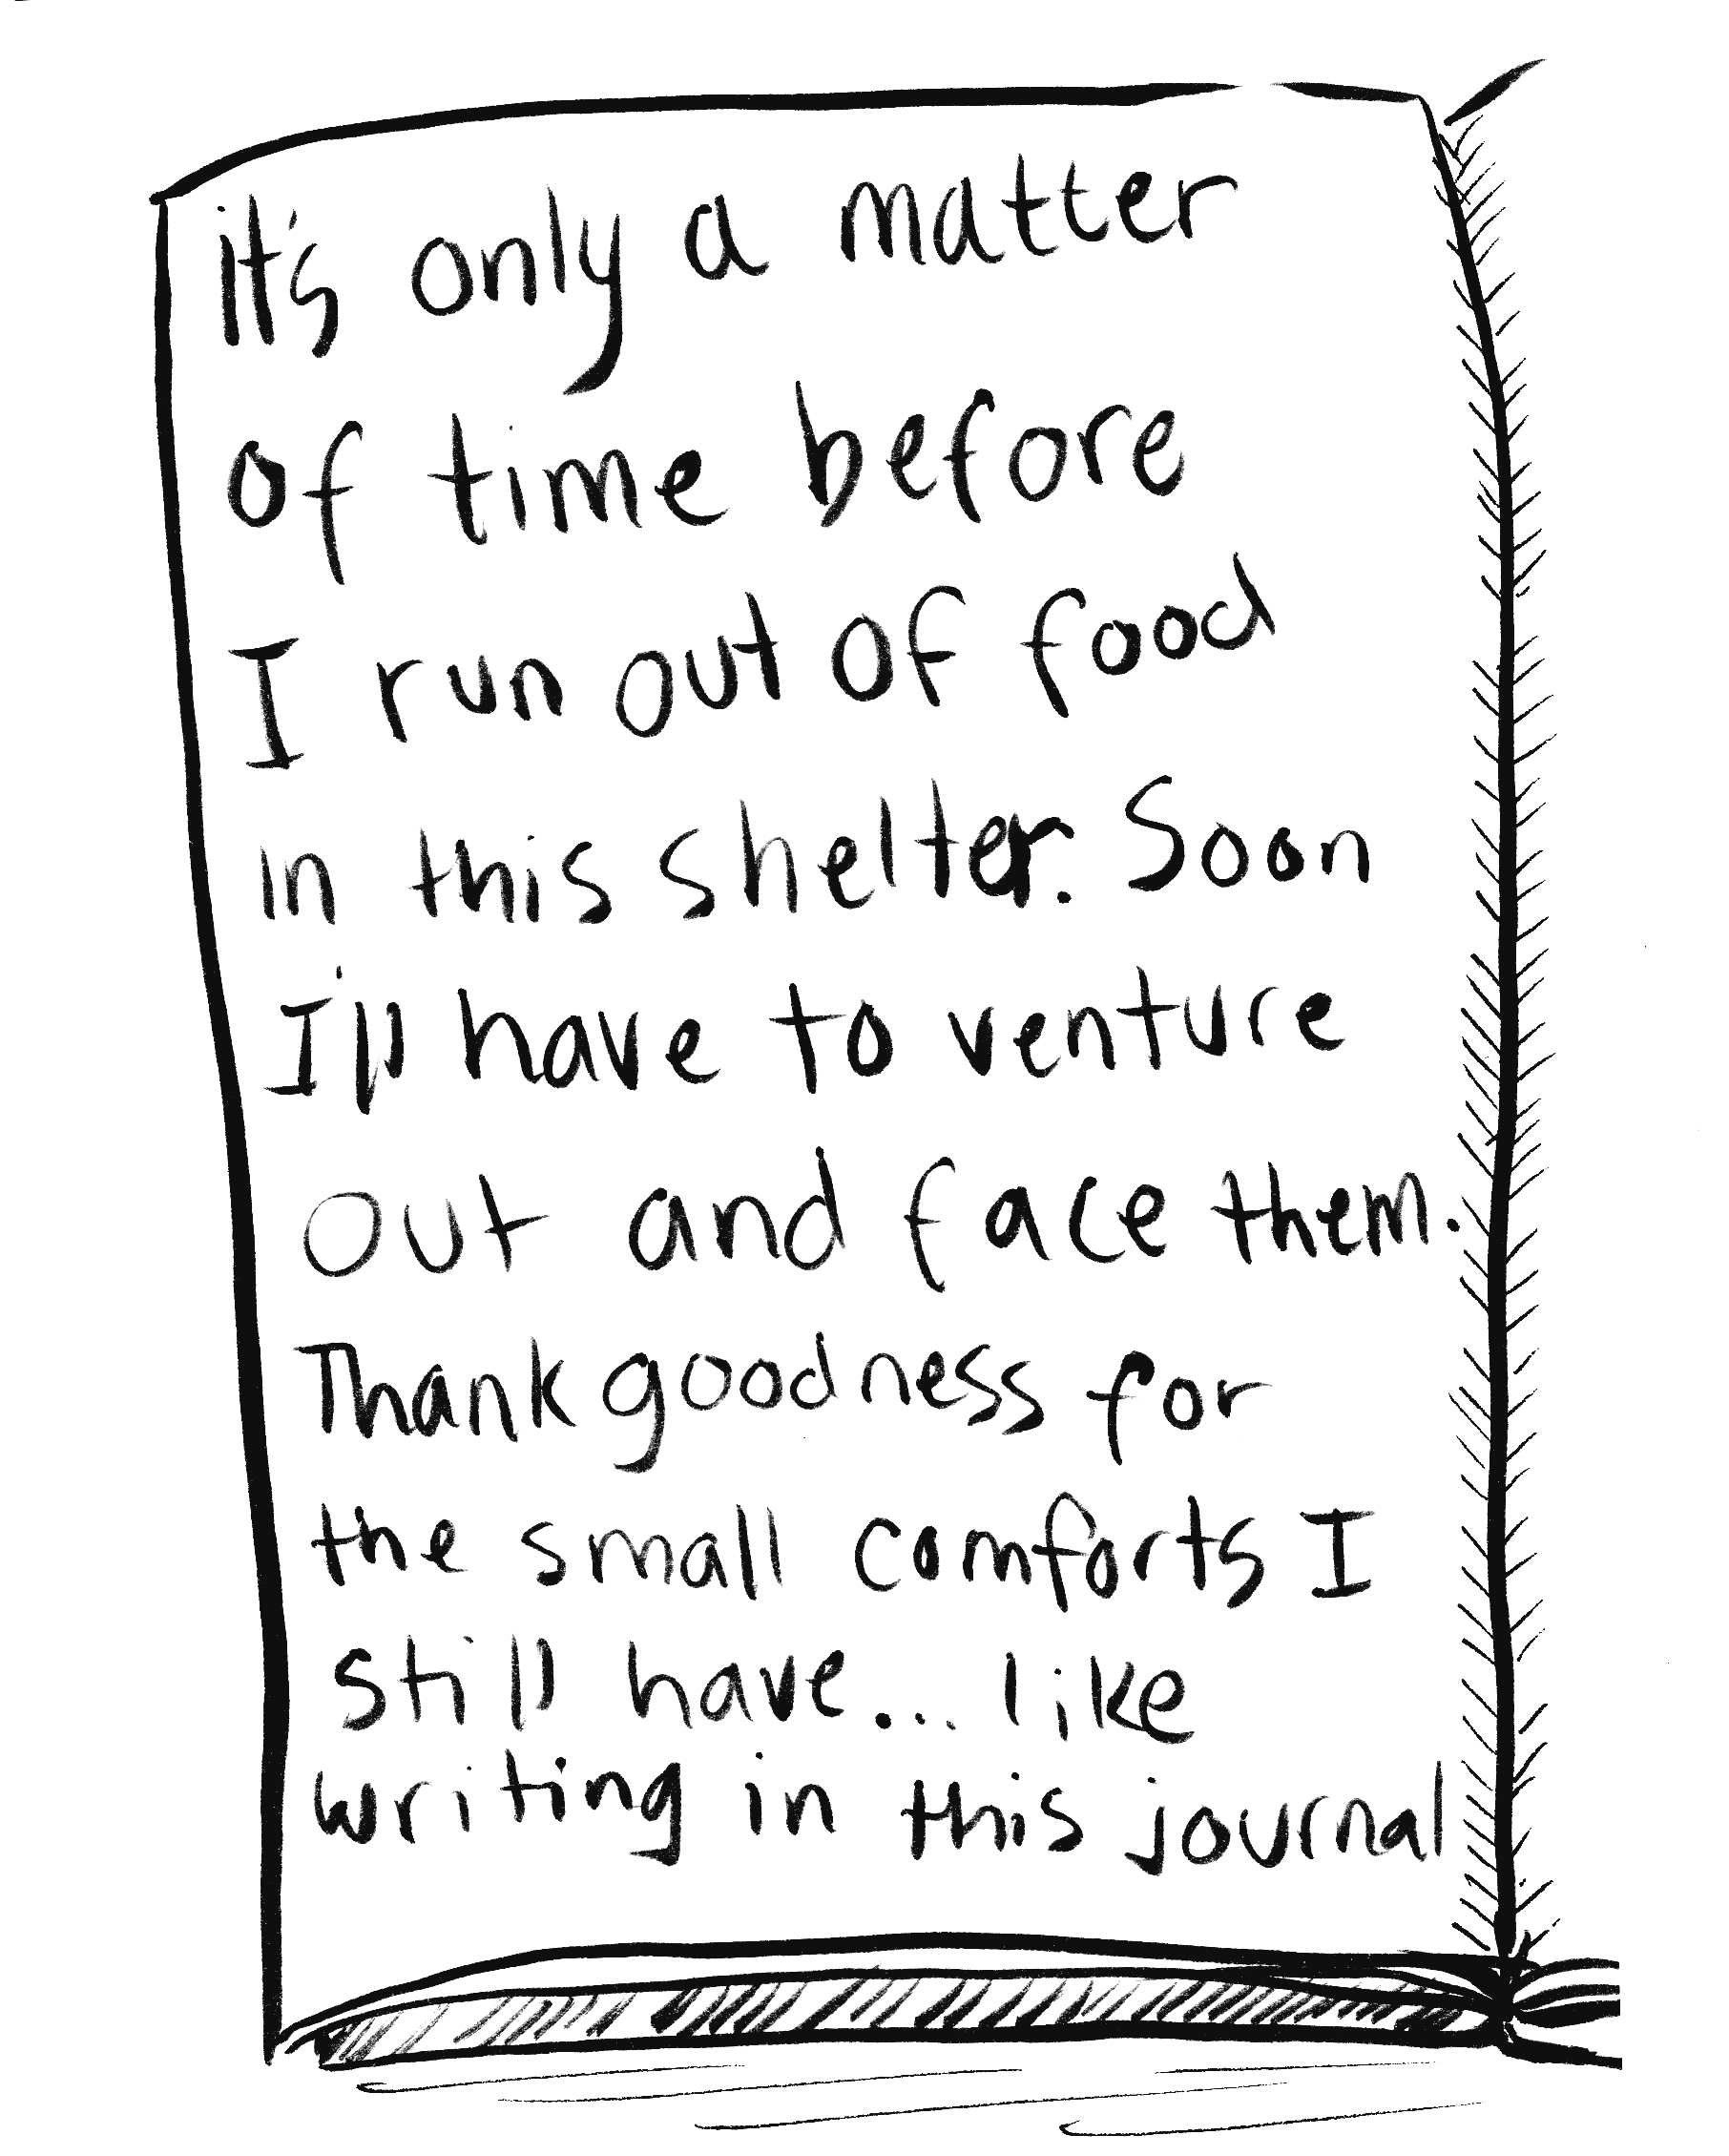 it's only a matter
of time before
I run out of food
in this shelter. Soon
I'll have to venture
out and face them.
Thank goodness for
the small comforts I
still have... like
writing in this journal